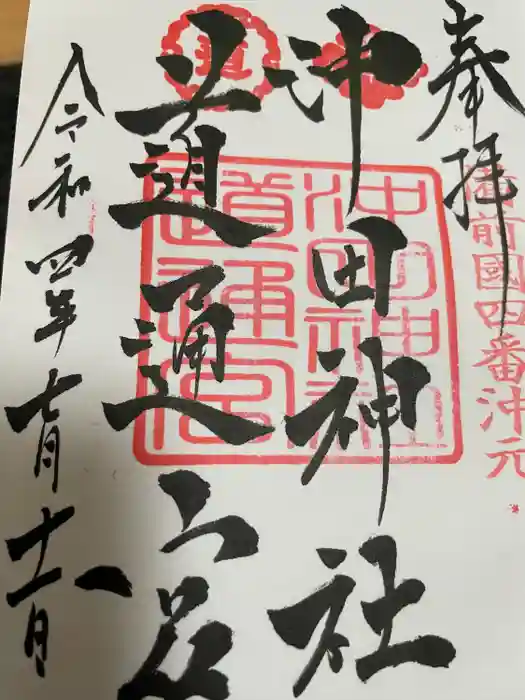 奉拝
備前國四番沖元
沖田神社
道通宮
令和四年七月十一日
道
沖田神社
道通宮